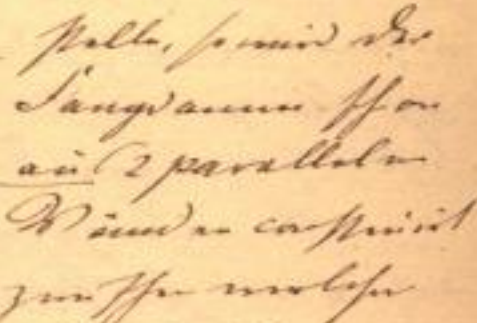 stelle, so wird der
Fangdamm schon
aus 2 parallelen
Wänden construirt
zwischen welche